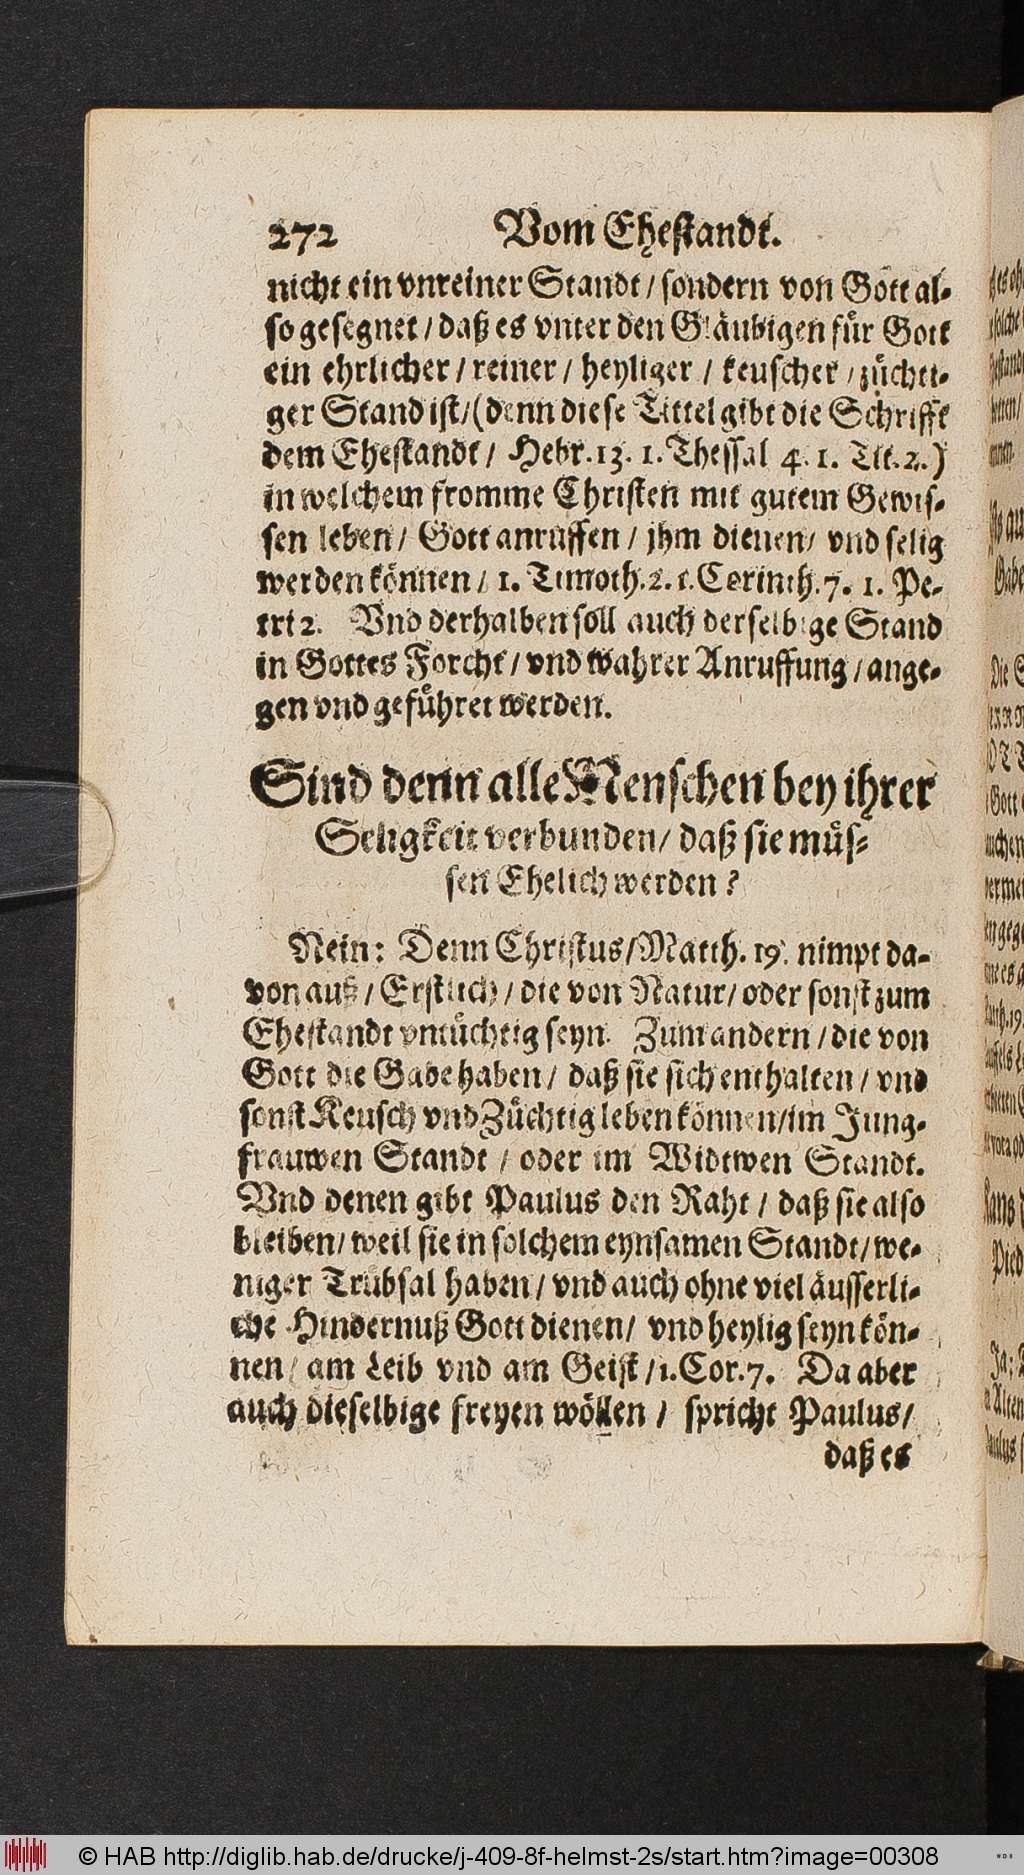 272 Vom Ehestandt.
nicht ein vnreiner Standt / sondern von Gott al-
so gesegnet / daß es vnter den Gläubigen für Gott
ein ehrlicher / reiner / heyliger / keuscher / züchti-
ger Stand ist / (denn diese Tittel gibt die Schrifft
dem Ehestandt / Hebr. 13. 1. Thessal 4. 1. Tit. 2. )
in welchem fromme Christen mit gutem Gewis-
sen leben / Gott anruffen / jhm dienen / vnd selig
werden können / 1. Timoth. 2. 1. Corinth. 7. 1. Pe-
tri 2. Vnd derhalben soll auch derselbige Stand
in Gottes Forcht / vnd wahrer Anruffung / ange-
gen vnd geführet werden.
Sind denn alle Menschen bey ihrer
Seligkeit verbunden / daß sie müs-
sen Ehelich werden ?
Nein : Denn Christus / Matth. 19. nimpt da-
von auß / Erstlich / die von Natur / oder sonst zum
Ehestandt vntüchtig seyn. Zum andern / die von
Gott die Gabe haben / daß sie sich enthalten / vnd
sonst Keusch vnd Züchtig leben können / im Jung-
frauwen Standt / oder im Widtwen Standt.
Vnd denen gibt Paulus den Raht / daß sie also
bleiben / weil sie in solchem eynsamen Standt / we-
niger Trübsal haben / vnd auch ohne viel äusserli-
che Hindernuß Gott dienen / vnd heylig seyn kön-
nen / am Leib vnd am Geist / 1. Cor. 7. Da aber
auch dieselbige freyen wöllen / spricht Paulus /
daß es
© HAB http://diglib.hab.de/drucke/j-409-8f-helmst-2s/start.htm?image=00308